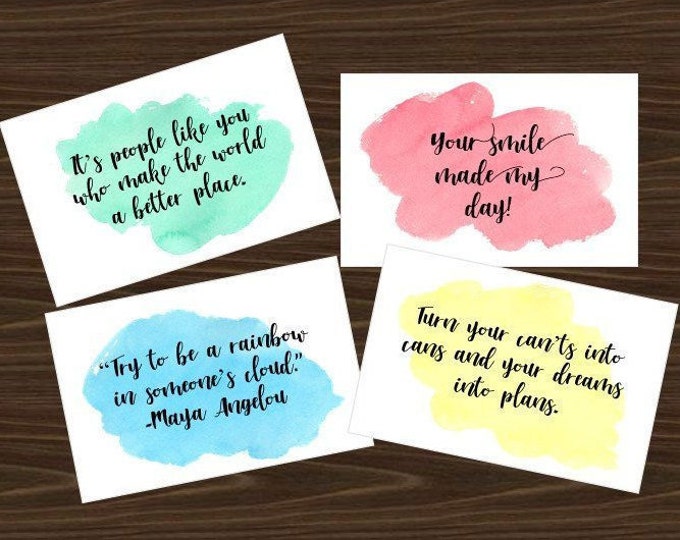 It's people like you
who make the world
a better place.
Your smile
made my
day!
"Try to be a rainbow
in someone's cloud."
-Maya Angelou
Turn your can'ts into
cans and your dreams
into plans.